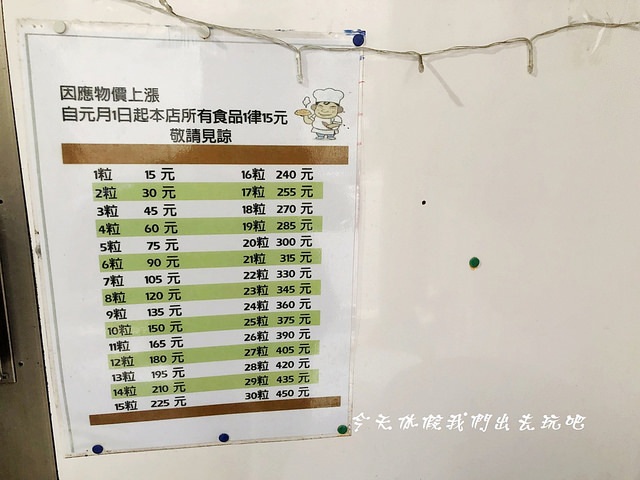 因應物價上漲
自元月1日起本店所有食品1律15元
敬請見諒
1粒 15 元
2粒 30 元
3粒 45 元
4粒 60 元
5粒 75 元
6粒 90 元
7粒 105 元
8粒 120 元
9粒 135 元
10粒 150 元
11粒 165 元
12粒 180 元
13粒 195 元
14粒 210 元
15粒 225 元
16粒 240 元
17粒 255 元
18粒 270 元
19粒 285 元
20粒 300 元
21粒 315 元
22粒 330 元
23粒 345 元
24粒 360 元
25粒 375 元
26粒 390 元
27粒 405 元
28粒 420 元
29粒 435 元
30粒 450 元
今天休假我們出去玩吧